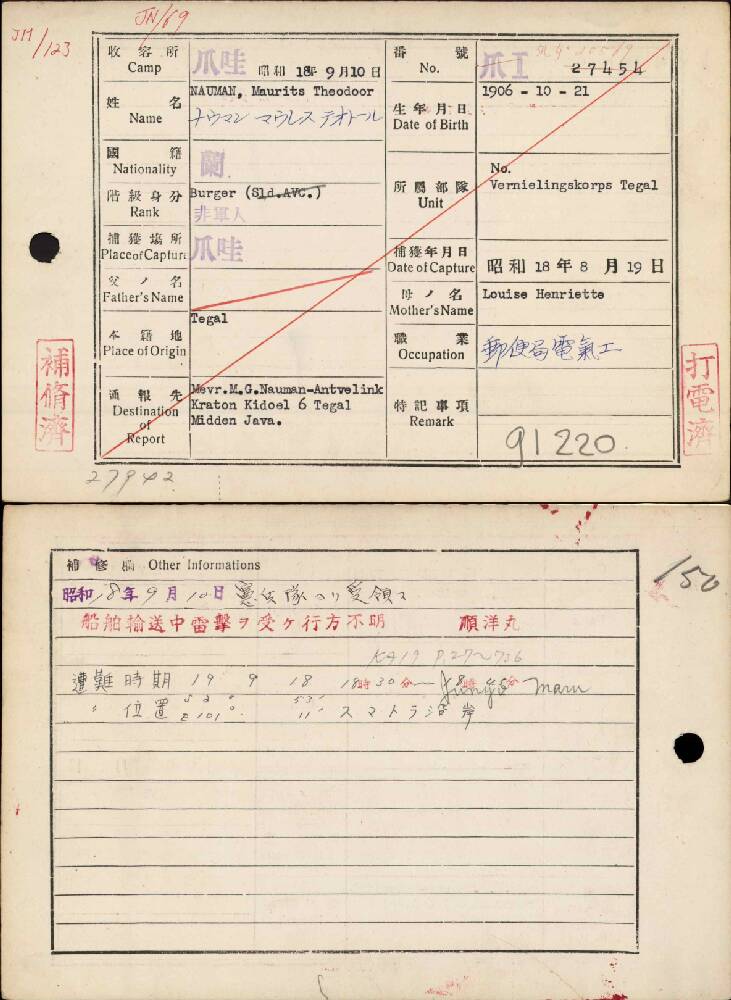 JM/123
JN/69
收容所 Camp 爪哇 昭和 18年 9月10日
番號 No. 爪工 27454
姓名 Name NAUMAN, Maurits Theodoor
ナウマン マウレス テオドール
生年月日 Date of Birth 1906 - 10 - 21
國籍 Nationality 蘭
階級身分 Rank Burger (Sld.AVC.)
非軍人
所屬部隊 Unit No. Vernielingskorps Tegal
捕獲場所 Place of Capture 爪哇
捕獲年月日 Date of Capture 昭和 18年 8月 19日
父ノ名 Father's Name
母ノ名 Mother's Name Louise Henriette
本籍地 Place of Origin Tegal
職業 Occupation 郵便局電氣工
通報先 Destination of Report
Mevr.M.G.Nauman-Antvelink
Kraton Kidoel 6 Tegal
Midden Java.
特記事項 Remark 91220.
補脩濟
打電濟
27942
補修欄 Other Informations
昭和18年9月10日 憲兵隊ヨリ受領ス
船舶輸送中雷擊ヲ受ケ行方不明 順洋丸
KA17 P.27~736
遭難時期 19 9 18 18時30分
Junyo maru
〃 位置 S 2° 53' E 101° 11' スマトラ沿岸
150